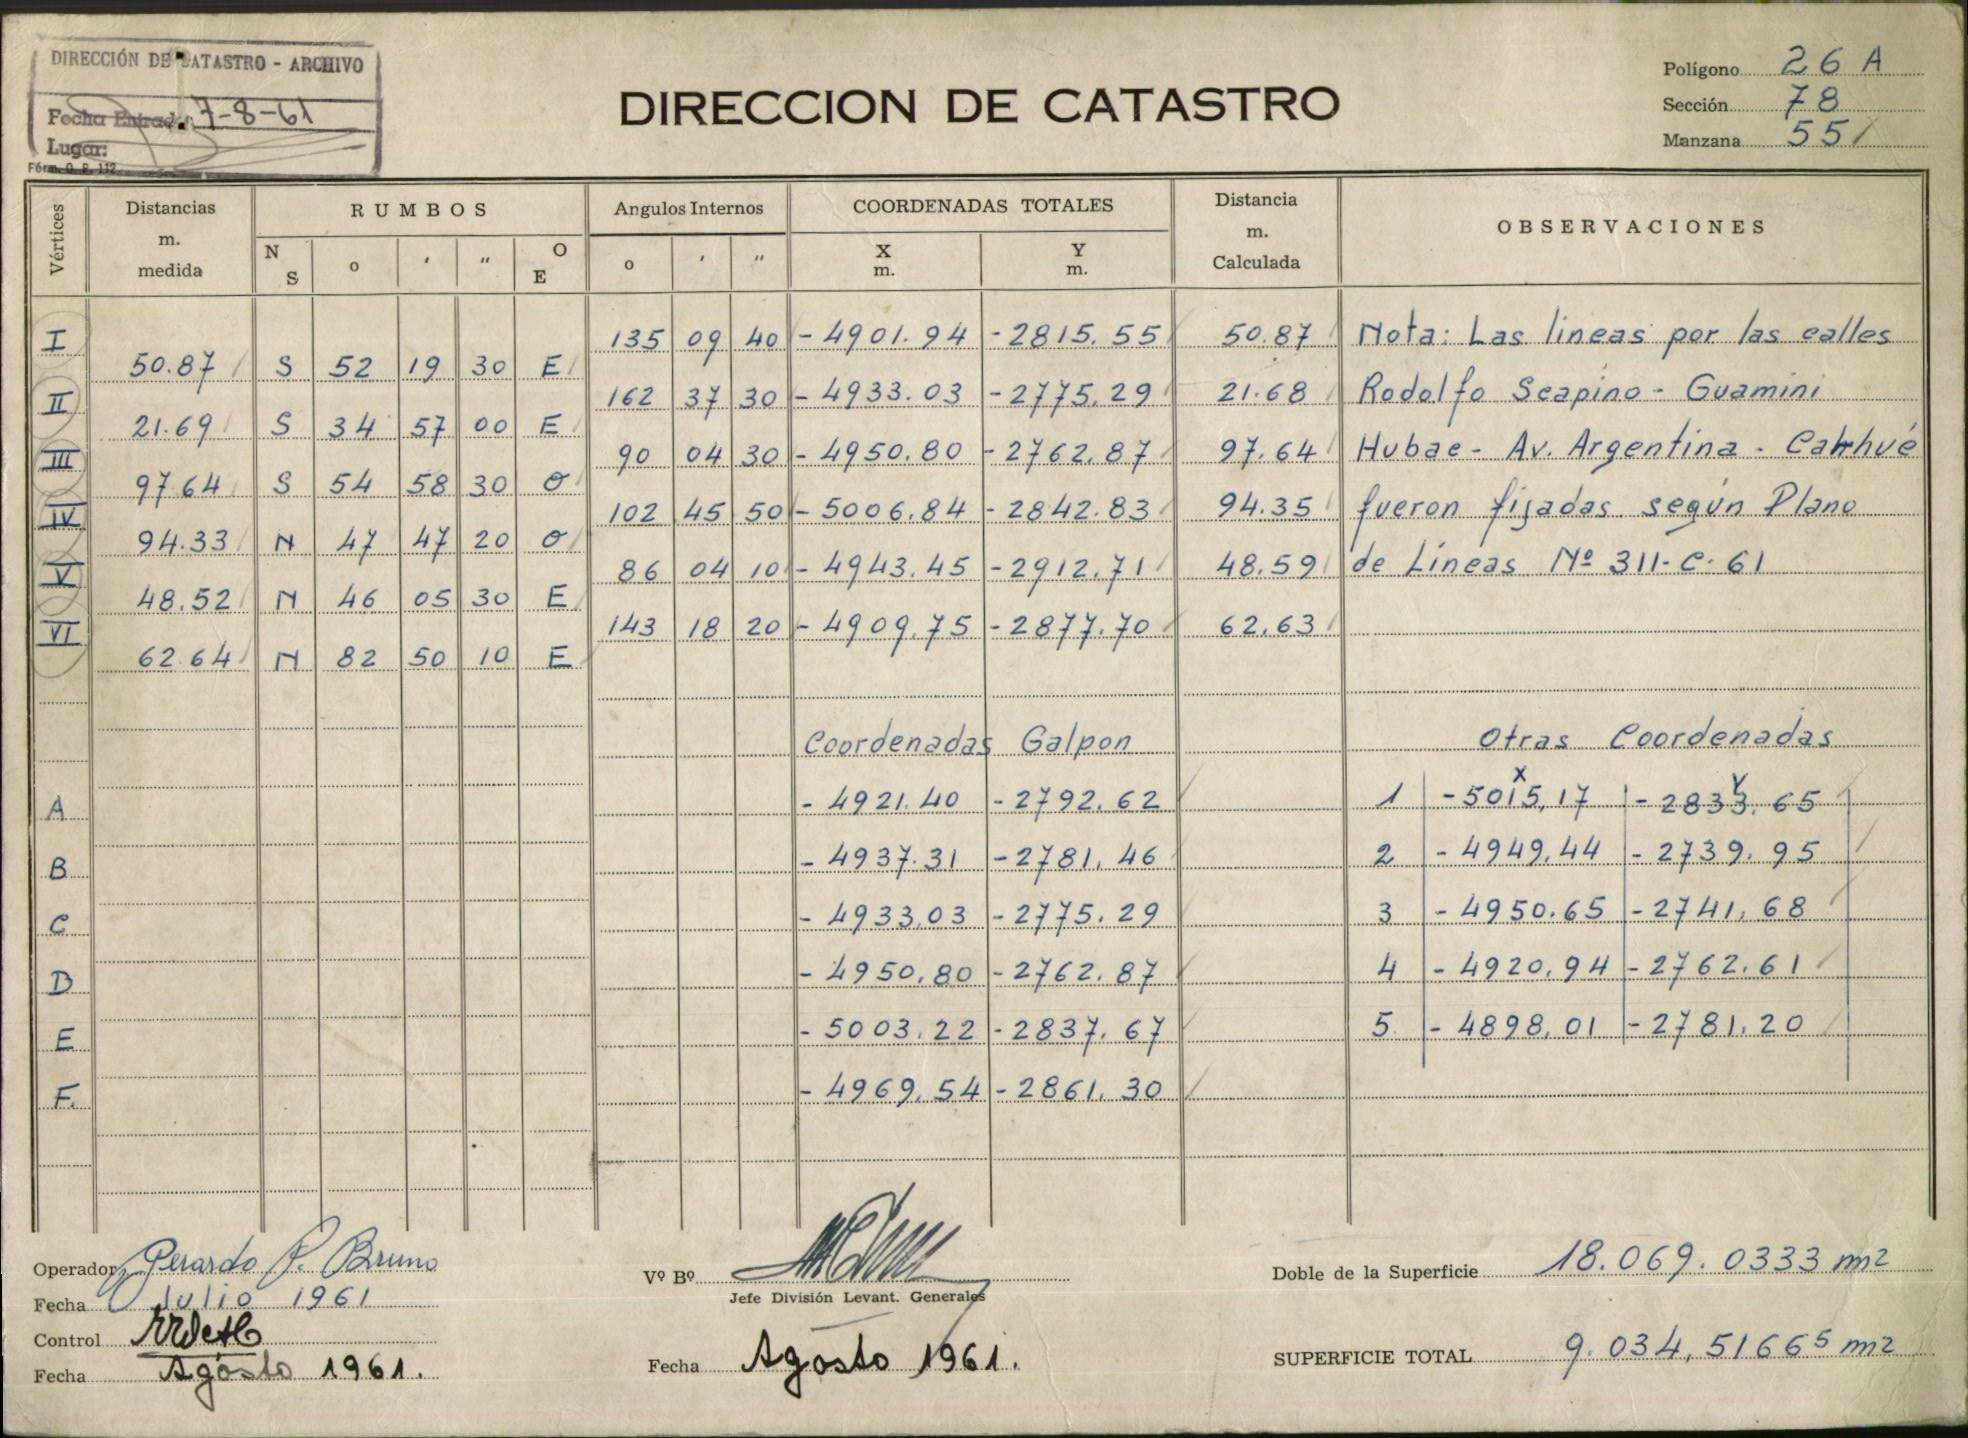 DIRECCIÓN DE CATASTRO - ARCHIVO
Fecha Entrada 7-8-61
Lugar:
Fórm. O. P. 112
DIRECCION DE CATASTRO
Polígono 26 A
Sección 78
Manzana 55
Vértices Distancias m. medida RUMBOS Angulos Internos COORDENADAS TOTALES Distancia m. Calculada OBSERVACIONES
N S o ' " O E o ' " X m. Y m.
I 135 09 40 - 4901.94 - 2815.55 50.87 Nota: Las lineas por las calles
50.87 S 52 19 30 E
II 162 37 30 - 4933.03 - 2775.29 21.68 Rodolfo Scapino - Guamini
21.69 S 34 57 00 E
III 90 04 30 - 4950.80 - 2762.87 97.64 Hubac - Av. Argentina - Carhué
97.64 S 54 58 30 O
IV 102 45 50 - 5006.84 - 2842.83 94.35 fueron fijadas según Plano
94.33 N 47 47 20 O
V 86 04 10 - 4943.45 - 2912.71 48.59 de Líneas Nº 311-C-61
48.52 N 46 05 30 E
VI 143 18 20 - 4909.75 - 2877.70 62.63
62.64 N 82 50 10 E
Coordenadas Galpon Otras Coordenadas
X Y
A - 4921.40 - 2792.62 1 - 5015,17 - 2833.65
B - 4937.31 - 2781.46 2 - 4949,44 - 2739.95
C - 4933,03 - 2775.29 3 - 4950.65 - 2741,68
D - 4950,80 - 2762.87 4 - 4920,94 - 2762.61
E - 5003.22 - 2837.67 5 - 4898,01 - 2781.20
F. - 4969.54 - 2861.30
Operador Gerardo P. Bruno
Fecha Julio 1961
Control
Fecha Agosto 1961.
Vº Bº
Jefe División Levant. Generales
Fecha Agosto 1961.
Doble de la Superficie 18.069.0333 m2
SUPERFICIE TOTAL 9.034,51665 m2